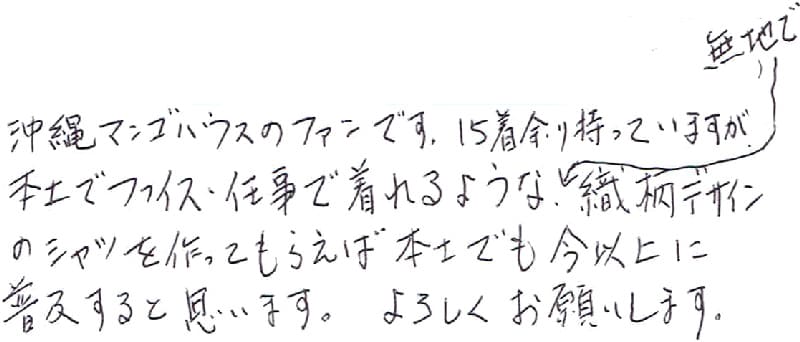 無地で
沖縄マンゴハウスのファンです。15着余り持っていますが
本土でフィス・仕事で着れるような、織柄デザイン
のシャツを作ってもらえば本土でも今以上に
普及すると思います。よろしくお願いします。